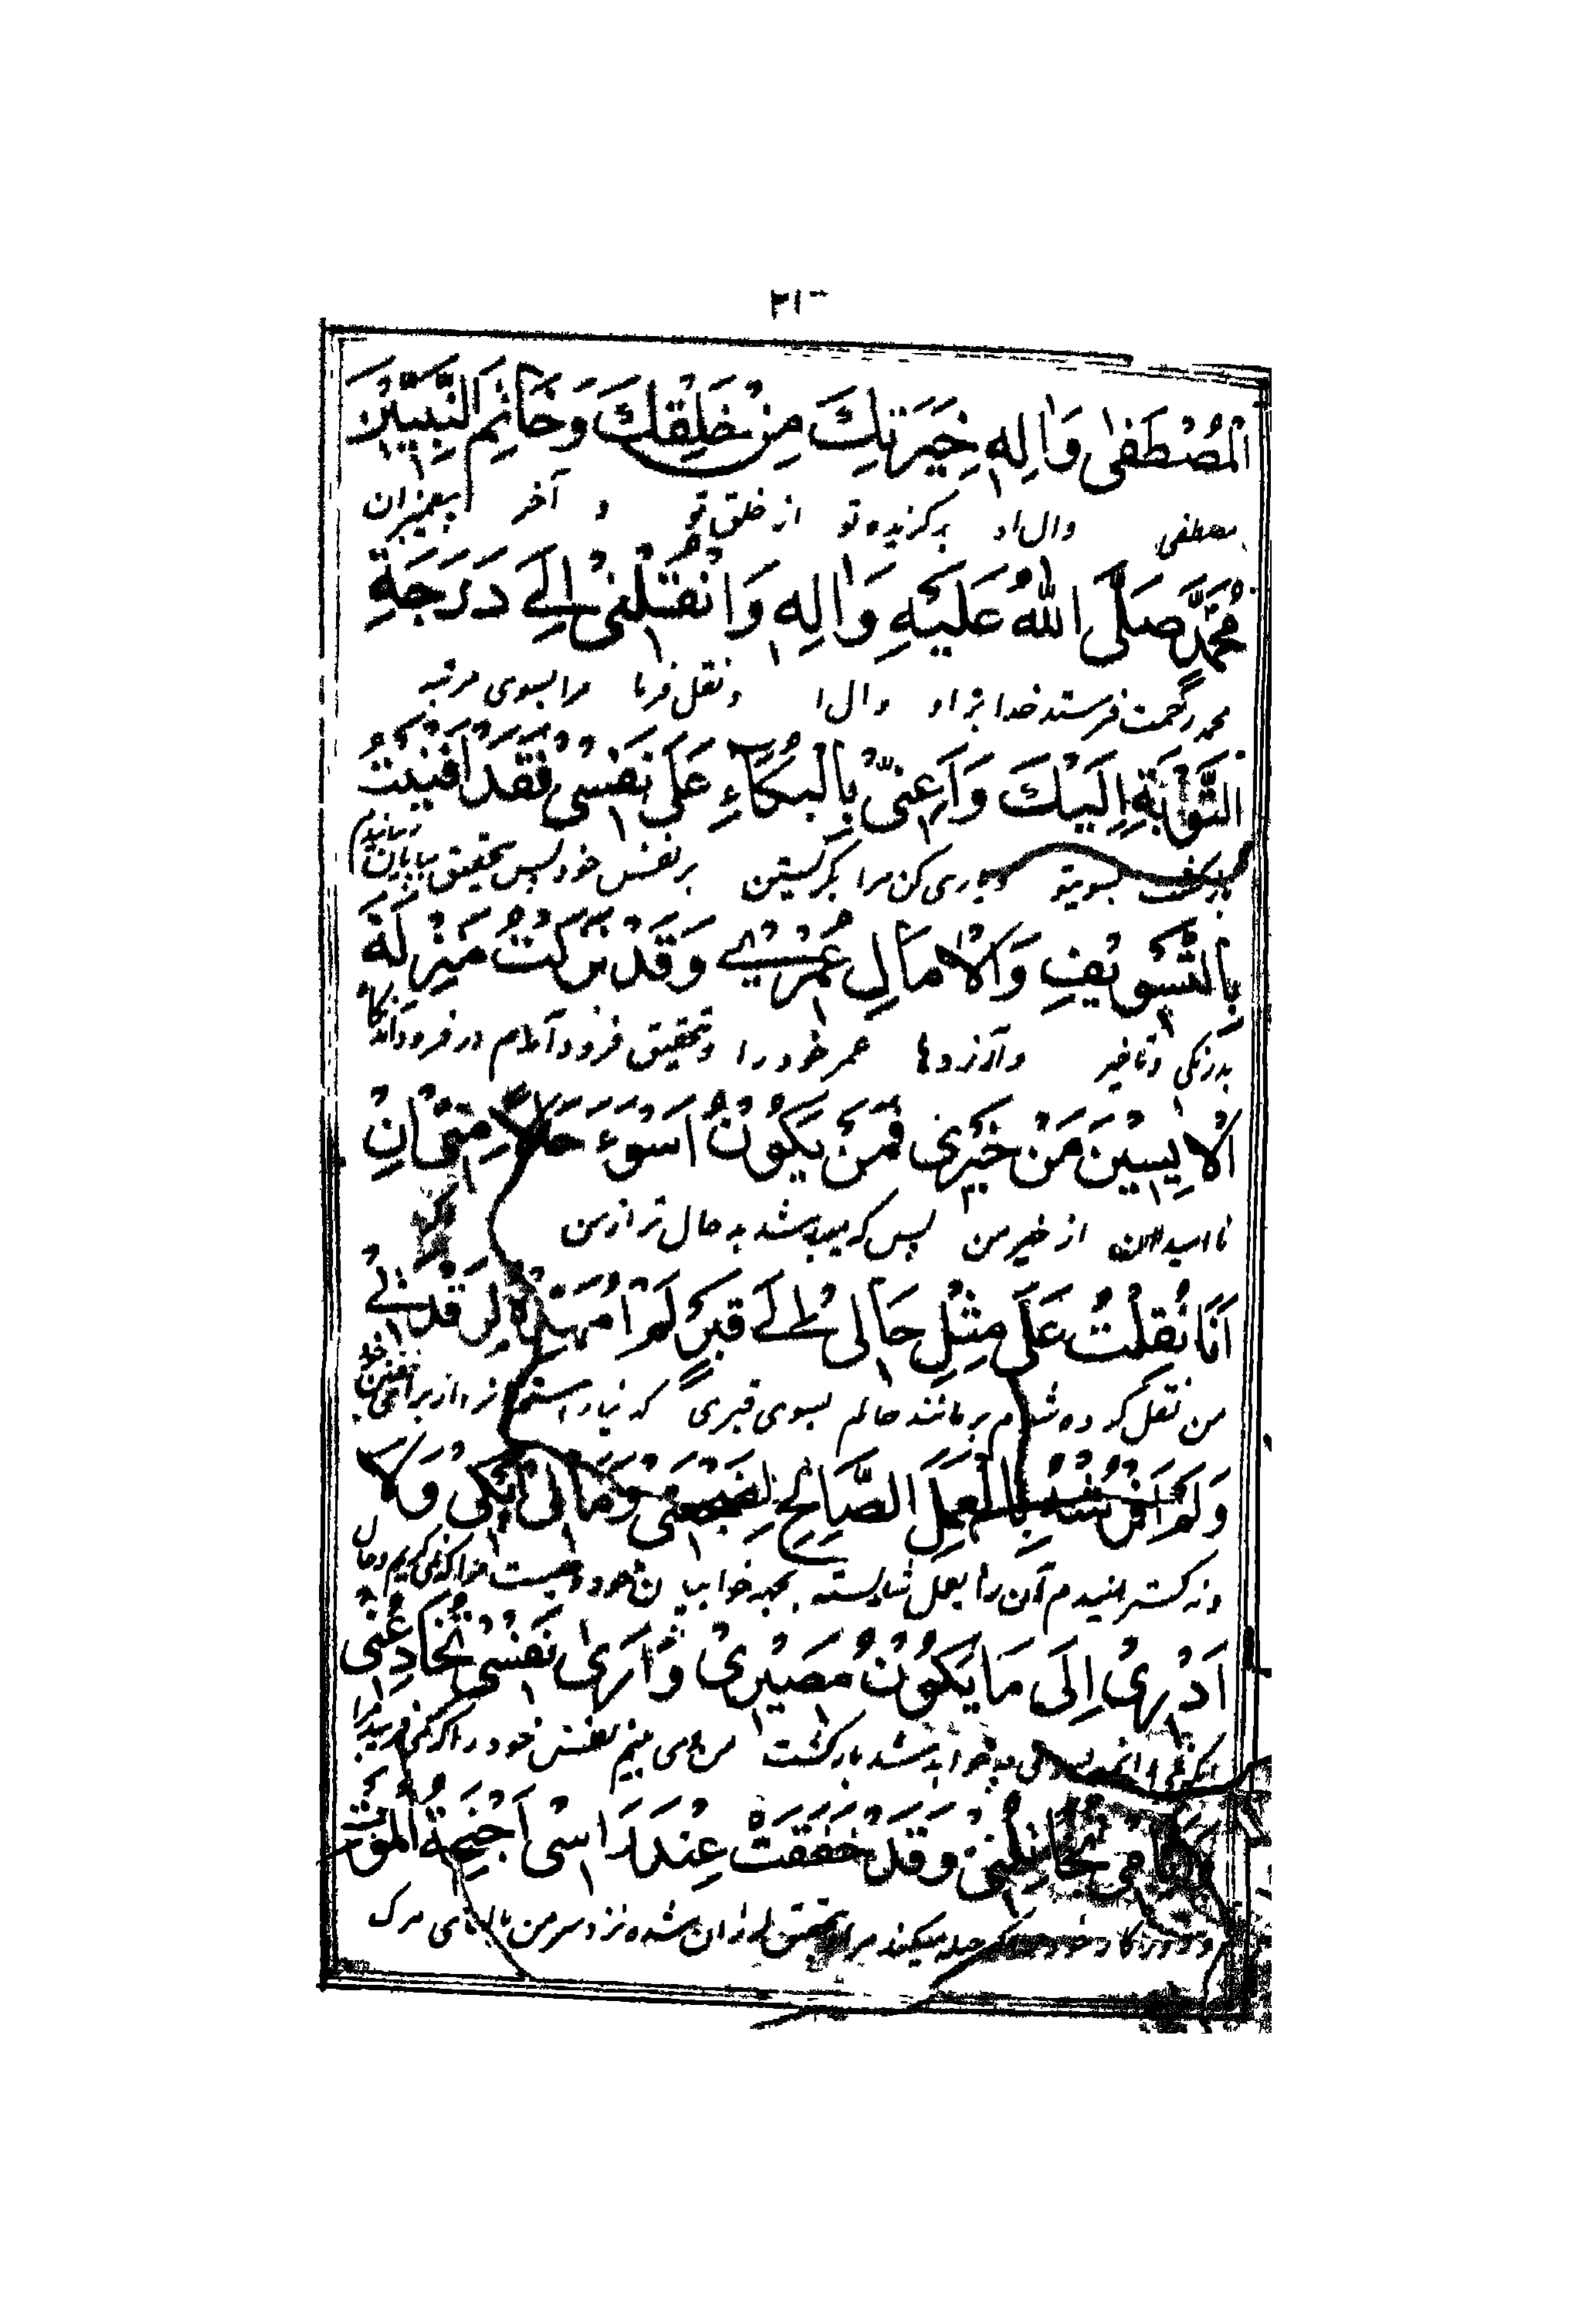 ٢١٠
الْمُصْطَفٰى وَاٰلِهٖ خِيَرَتِكَ مِنْ خَلْقِكَ وَخَاتِمِ النَّبِيّيْنَ
مصطفی وال او برگزیده تو از خلق تو و آخر پیغمبران
مُحَمَّدٍ صَلَّى اللّٰهُ عَلَيْهِ وَاٰلِهٖ وَانْقُلْنِىْ اِلٰى دَرَجَةِ
محمد رحمت فرستد خدا بر او وال ا ونقل فرما مرا بسوی مرتبه
التَّوْبَةِ اِلَيْكَ وَاَعِنِّىْ بِالْبُكَاۤءِ عَلٰى نَفْسِىْ فَقَدْ اَفْنَيْتُ
بازگشت بسویتو ویاری کن مرا بگریستن بر نفس خود پس تحقیق بپایان رسانیدم
بِالتَّسْوِيْفِ وَالْاٰمَالِ عُمْرِىْ وَقَدْ نَزَلْتُ مَنْزِلَةَ
بدرنگی وتاخیر وآرزوها عمر خود را وتحقیق فرود آمدام در فرودآمدنگاه
الْاٰيِسِيْنَ مَنْ خَيْرِىْ فَمَنْ يَكُوْنُ اَسْوَءَ حَالًا مِنِّىْ اِنْ
نا امیدان از خیر من پس که میباشد بد حال تر از من اگر
اَنَا نُقِلْتُ عَلٰى مِثْلِ حَالِىْ اِلٰى قَبْرٍ لَمْ اُمَهِّدْهُ لِرَقْدَتِىْ
من نقل کرده شوم بر مانند حالم بسوی قبری که نیاراستم از برای خفتن خود
وَلَمْ اَفْرُشْهُ بِالْعَمَلِ الصَّالِحِ لِضَجْعَتِىْ وَمَالِىْ لَا اَبْكِىْ وَلَا
ونه گسترانیدم آن را بعمل شایسته بجهه خوابیدن خود وچیست مرا که نمی گریم وحال
اَدْرِىْ اِلٰى مَا يَكُوْنُ مَصِيْرِىْ وَاَرٰى نَفْسِىْ تُخَادِعُنِىْ
انکه نمی دانم بسوی چه خواهد شد بازگشت من و می بینم نفس خود را که می فریبد مرا
وَاَيَّامِىْ تُخَاتِلُنِىْ وَقَدْ خَفَقَتْ عِنْدَ رَاْسِىْ اَجْنِحَةُ الْمَوْتِ
وروزگار خود که حیله میکند مرا وتحقیق لرزان شده نزد سر من بالهای مرگ